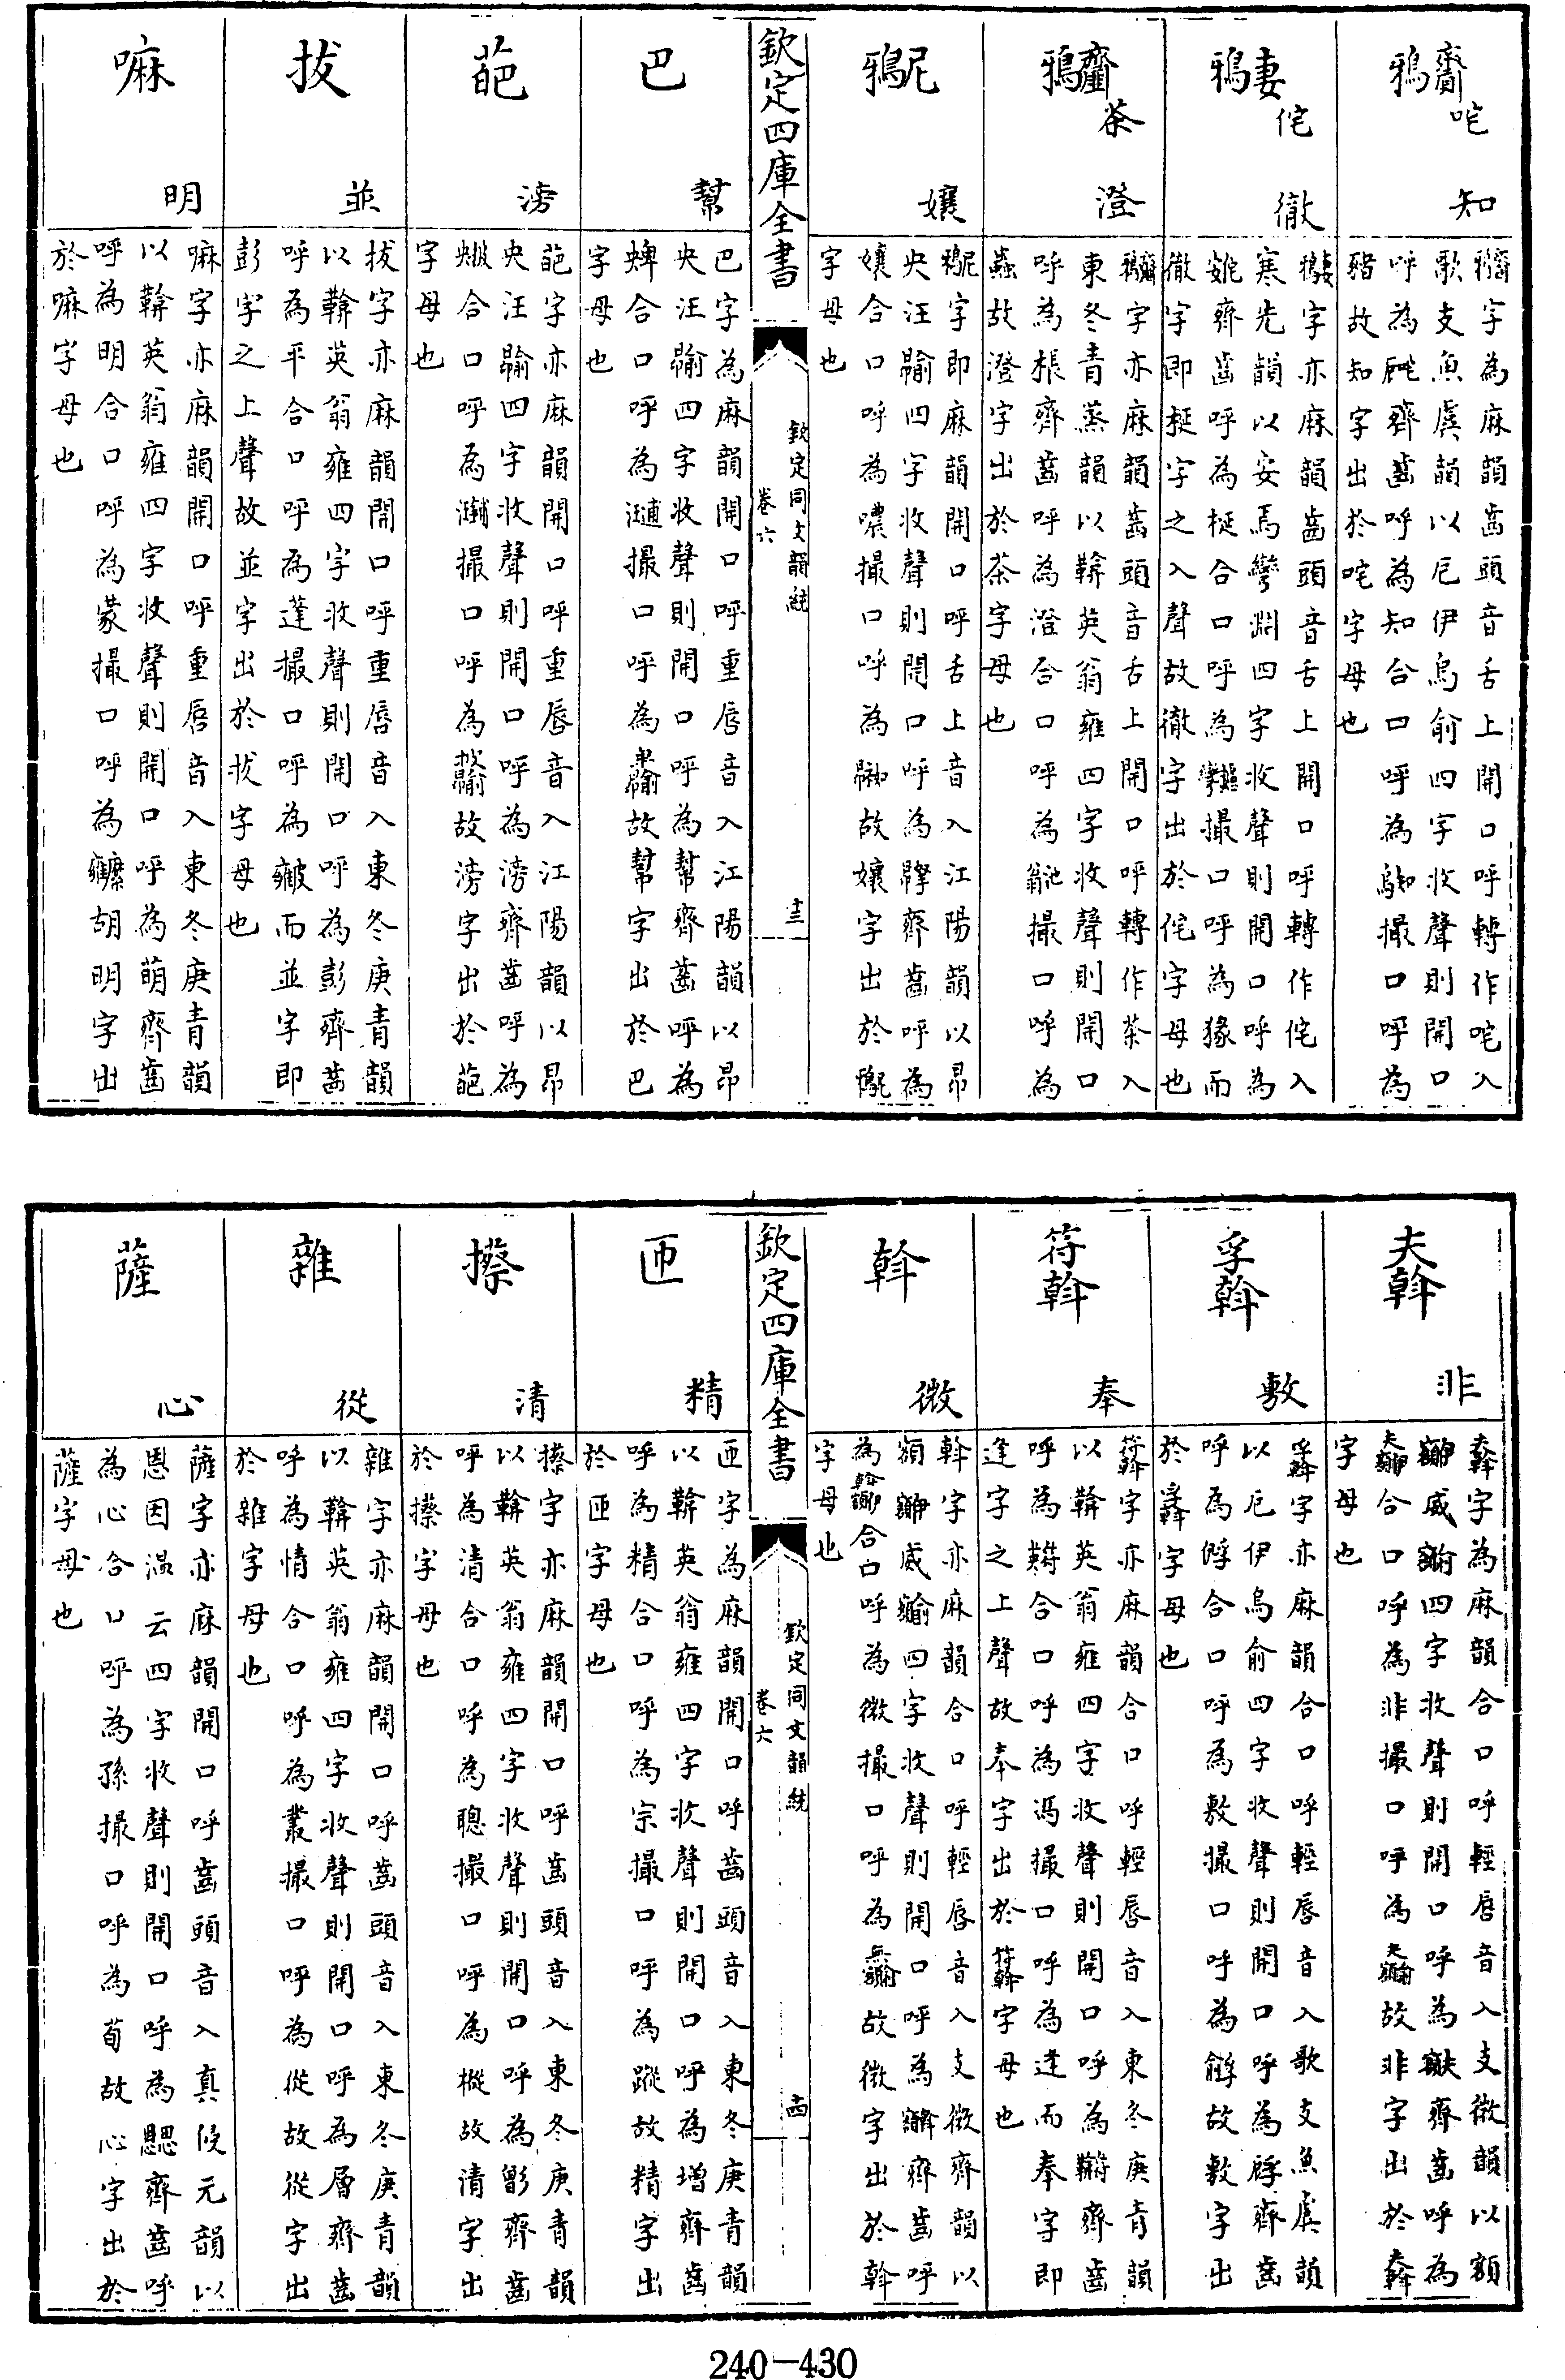 咤 知
字為麻韻齒頭音舌上開口呼轉作咤入
歌支魚虞韻以厄伊烏俞四字收聲則開口
呼為 齊齒呼為知合口呼為 撮口呼為
豬故知字出於咤字母也
侘 徹
字亦麻韻齒頭音舌上開口呼轉作侘入
寒先韻以安焉彎淵四字收聲則開口呼為
齊齒呼為梴合口呼為 撮口呼為猭而
徹字即梴字之入聲故徹字出於侘字母也
茶 澄
字亦麻韻齒頭音舌上開口呼轉作茶入
東冬青蒸韻以鞥英翁雍四字收聲則開口
呼為棖齊齒呼為澄合口呼為 撮口呼為
蟲故澄字出於茶字母也
孃
字即麻韻開口呼舌上音入江陽韻以昂
央汪 四字收聲則開口呼為 齊齒呼為
孃合口呼為噥撮口呼為 故孃字出於
字母也
欽定四庫全書
欽定同文韻統
卷六
十三
巴 幫
巴字為麻韻開口呼重唇音入江陽韻以昂
央汪 四字收聲則開口呼為幫齊齒呼為
合口呼為 撮口呼為 故幫字出於巴
字母也
葩 滂
葩字亦麻韻開口呼重唇音入江陽韻以昂
央汪 四字收聲則開口呼為滂齊齒呼為
合口呼為 撮口呼為 故滂字出於葩
字母也
拔 並
拔字亦麻韻開口呼重唇音入東冬庚青韻
以鞥英翁雍四字收聲則開口呼為彭齊齒
呼為平合口呼為蓬撮口呼為 而並字即
彭字之上聲故並字出於拔字母也
嘛 明
嘛字亦麻韻開口呼重唇音入東冬庚青韻
以鞥英翁雍四字收聲則開口呼為萌齊齒
呼為明合口呼為蒙撮口呼為 胡明字出
於嘛字母也
夫斡 非
夫斡字為麻韻合口呼輕唇音入支微韻以額
威 四字收聲則開口呼為 齊齒呼為
合口呼為非撮口呼為 故非字出於夫斡
字母也
孚斡 敷
孚斡字亦麻韻合口呼輕唇音入歌支魚虞韻
以厄伊烏俞四字收聲則開口呼為 齊齒
呼為 合口呼為敷撮口呼為 故敷字出
於孚斡字母也
符斡 奉
符斡字亦麻韻合口呼輕唇音入東冬庚青韻
以鞥英翁雍四字收聲則開口呼為 齊齒
呼為 合口呼為馮撮口呼為逢而奉字即
逢字之上聲故奉字出於符斡字母也
斡 微
斡字亦麻韻合口呼輕唇音入支微齊韻以
額 威 四字收聲則開口呼為 齊齒呼
為 合口呼為微撮口呼為 故微字出於斡
字母也
欽定四庫全書
欽定同文韻統
卷六
十四
匝 精
匝字為麻韻開口呼齒頭音入東冬庚青韻
以鞥英翁雍四字收聲則開口呼為增齊齒
呼為精合口呼為宗撮口呼為蹤故精字出
於匝字母也
攃 清
攃字亦麻韻開口呼齒頭音入東冬庚青韻
以鞥英翁雍四字收聲則開口呼為 齊齒
呼為清合口呼為聰撮口呼為樅故清字出
於攃字母也
雜 從
雜字亦麻韻開口呼齒頭音入東冬庚青韻
以鞥英翁雍四字收聲則開口呼為層齊齒
呼為情合口呼為叢撮口呼為從故從字出
於雜字母也
薩 心
薩字亦麻韻開口呼齒頭音入真侵元韻以
恩因溫云四字收聲則開口呼為 齊齒呼
為心合口呼為孫撮口呼為荀故心字出於
薩字母也
240-430